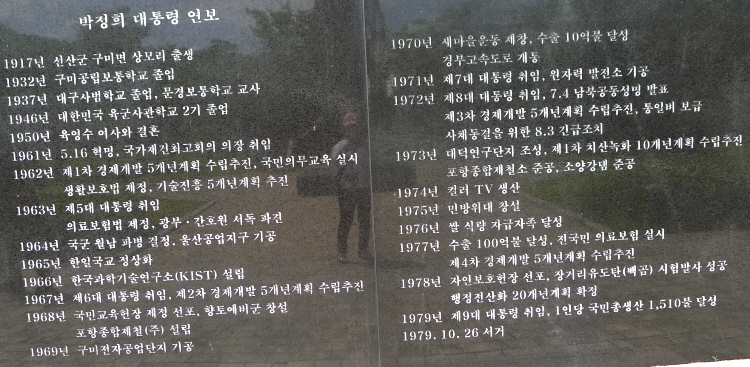 박정희 대통령 연보
1917년 선산군 구미면 상모리 출생
1932년 구미공립보통학교 졸업
1937년 대구사범학교 졸업, 문경보통학교 교사
1946년 대한민국 육군사관학교 2기 졸업
1950년 육영수 여사와 결혼
1961년 5.16 혁명, 국가재건최고회의 의장 취임
1962년 제1차 경제개발 5개년계획 수립추진, 국민의무교육 실시
생활보호법 제정, 기술진흥 5개년계획 추진
1963년 제5대 대통령 취임
의료보험법 제정, 광부·간호원 서독 파견
1964년 국군 월남 파병 결정, 울산공업지구 기공
1965년 한일국교 정상화
1966년 한국과학기술연구소(KIST) 설립
1967년 제6대 대통령 취임, 제2차 경제개발 5개년계획 수립추진
1968년 국민교육헌장 제정 선포, 향토예비군 창설
포항종합제철(주) 설립
1969년 구미전자공업단지 기공
1970년 새마을운동 제창, 수출 10억불 달성
경부고속도로 개통
1971년 제7대 대통령 취임, 원자력 발전소 기공
1972년 제8대 대통령 취임, 7.4 남북공동성명 발표
제3차 경제개발 5개년계획 수립추진, 통일벼 보급
사채동결을 위한 8.3 긴급조치
1973년 대덕연구단지 조성, 제1차 치산녹화 10개년계획 수립추진
포항종합제철소 준공, 소양강댐 준공
1974년 컬러 TV 생산
1975년 민방위대 창설
1976년 쌀 식량 자급자족 달성
1977년 수출 100억불 달성, 전국민 의료보험 실시
제4차 경제개발 5개년계획 수립추진
1978년 자연보호헌장 선포, 장거리유도탄(백곰) 시험발사 성공
행정전산화 20개년계획 확정
1979년 제9대 대통령 취임, 1인당 국민총생산 1,510불 달성
1979. 10. 26 서거